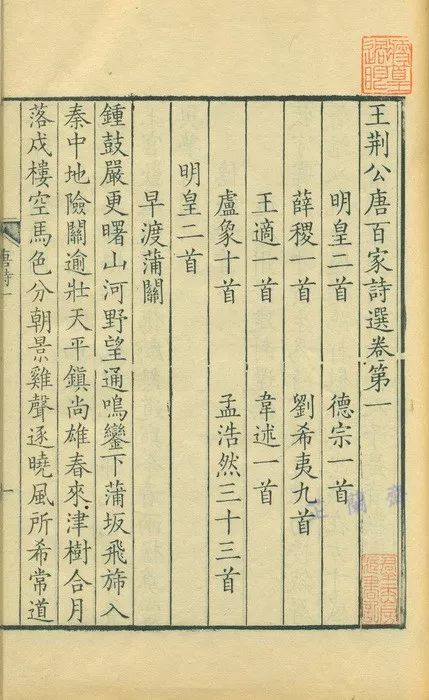 王荆公唐百家詩選卷第一
明皇二首　德宗一首
薛稷二首　劉希夷九首
王適一首　韋述一首
盧象十首　孟浩然三十三首
明皇二首
早渡蒲關
鍾鼓嚴更曙山河野望通鳴鑾下蒲坂飛斾入
秦中地險關逾壯天平鎮尚雄春來津樹合月
落戍樓空馬色分朝景雞聲逐曉風所希常道
唐詩一
一